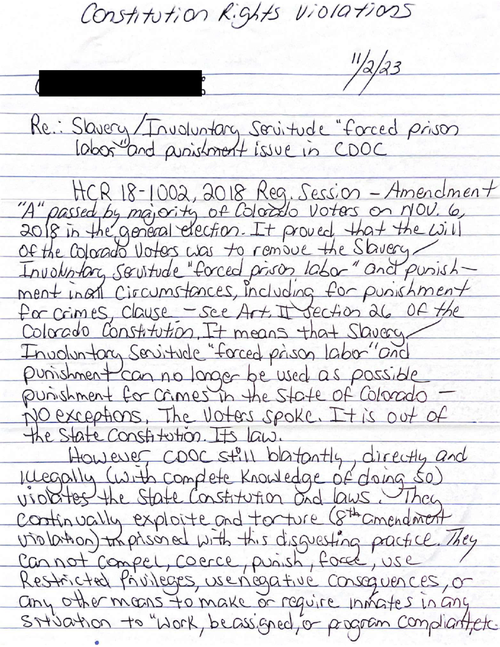 Constitution Rights Violations
11/2/23
Re.: Slavery/Involuntary Servitude "forced prison
labor" and punishment issue in CDOC
HCR 18-1002, 2018 Reg. Session - Amendment
"A" passed by majority of Colorado Voters on NOV. 6,
2018 in the general election. It proved that the will
of the Colorado Voters was to remove the Slavery/
Involuntary Servitude "forced prison labor" and punish-
ment in all circumstances, including for punishment
for crimes, clause - see Art. II section 26 of the
Colorado Constitution. It means that Slavery/
Involuntary Servitude "forced prison labor" and
punishment can no longer be used as possible
punishment for crimes in the State of Colorado -
NO exceptions. The Voters spoke. It is out of
the State Constitution. Its law.
However CDOC still blatantly, directly and
illegally (with complete knowledge of doing so)
violates the State Constitution and laws. They
continually exploite and torture (8th amendment
violation) imprisoned with this disgusting practice. They
can not compel, coerce, punish, force, use
Restricted Privileges, use negative consequences, or
any other means to make or require inmates in any
situation to "work, be assigned, or program compliant, etc.